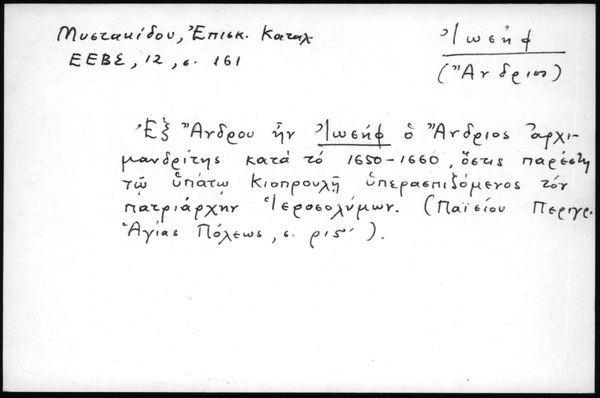 Μυστακίδου, Ἐπισκ. Καταλ
ΕΕΒΣ, 12, σ. 161
Ἰωσήφ
(Ἄνδριος)
Ἐξ Ἄνδρου ἦν Ἰωσήφ ὁ Ἄνδριος ἀρχι-
μανδρίτης κατά τό 1650-1660, ὅστις παρέστη
τῷ ὑπάτῳ Κιοπρουλῆ ὑπερασπιζόμενος τόν
πατριάρχην Ἱεροσολύμων. (Παϊσίου Περιγρ.
Ἁγίας Πόλεως, σ. ριϛʹ).